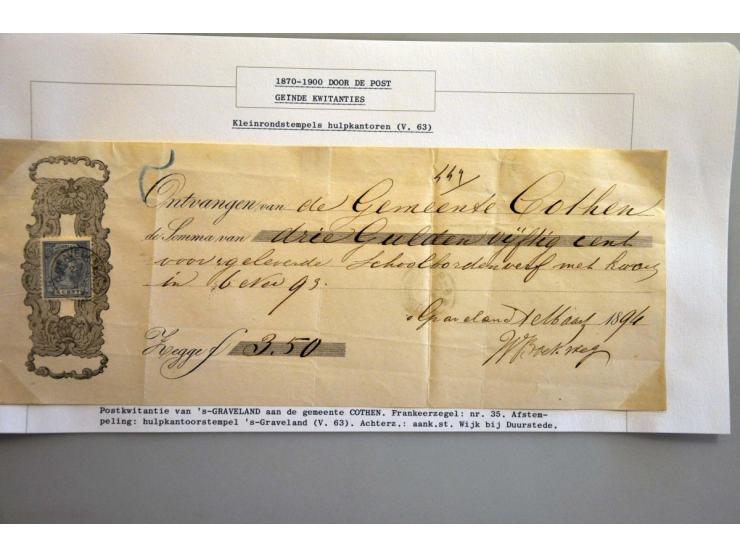 1870-1900 DOOR DE POST
GEINDE KWITANTIES
Kleinrondstempels hulpkantoren (V. 63)
449
Ontvangen van de Gemeente Cothen
de Somma van drie Gulden vijftig cent
voor geleverde Schoolbordenverf met
in 6 Nov 93.
s Graveland 1 Maart 1894
Zegge f 3.50
Postkwitantie van 's-GRAVELAND aan de gemeente COTHEN. Frankeerzegel: nr. 35. Afstem-
peling: hulpkantoorstempel 's-Graveland (V. 63). Achterz.: aank.st. Wijk bij Duurstede.